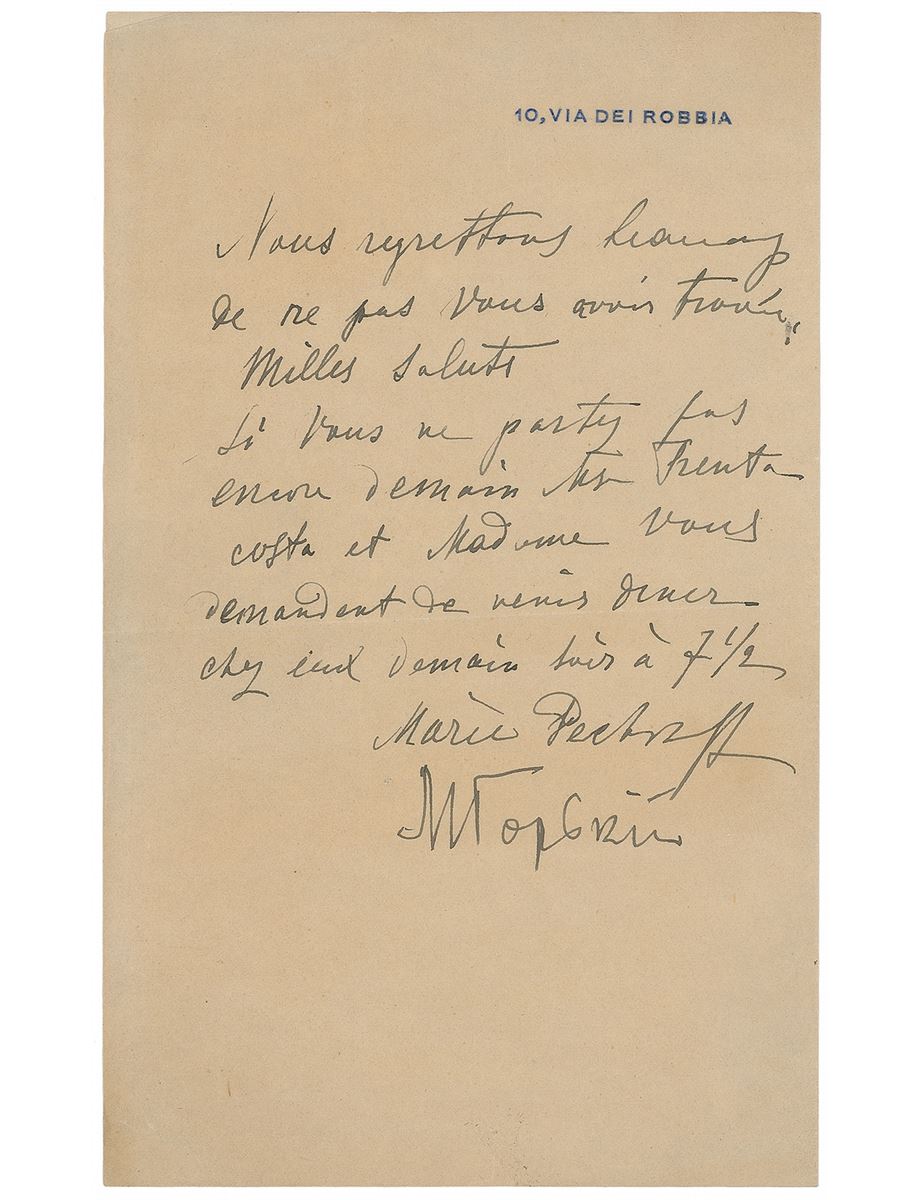 10, VIA DEI ROBBIA
Nous regrettons beaucoup
de ne pas Vous avoir trouvé.
Milles Saluts
Si Vous ne partez pas
encore demain Mr Trenta
costa et Madame Vous
demandent de venir diner
chez eux demain soir à 7 1/2
Marie Pechkoff
М Горький